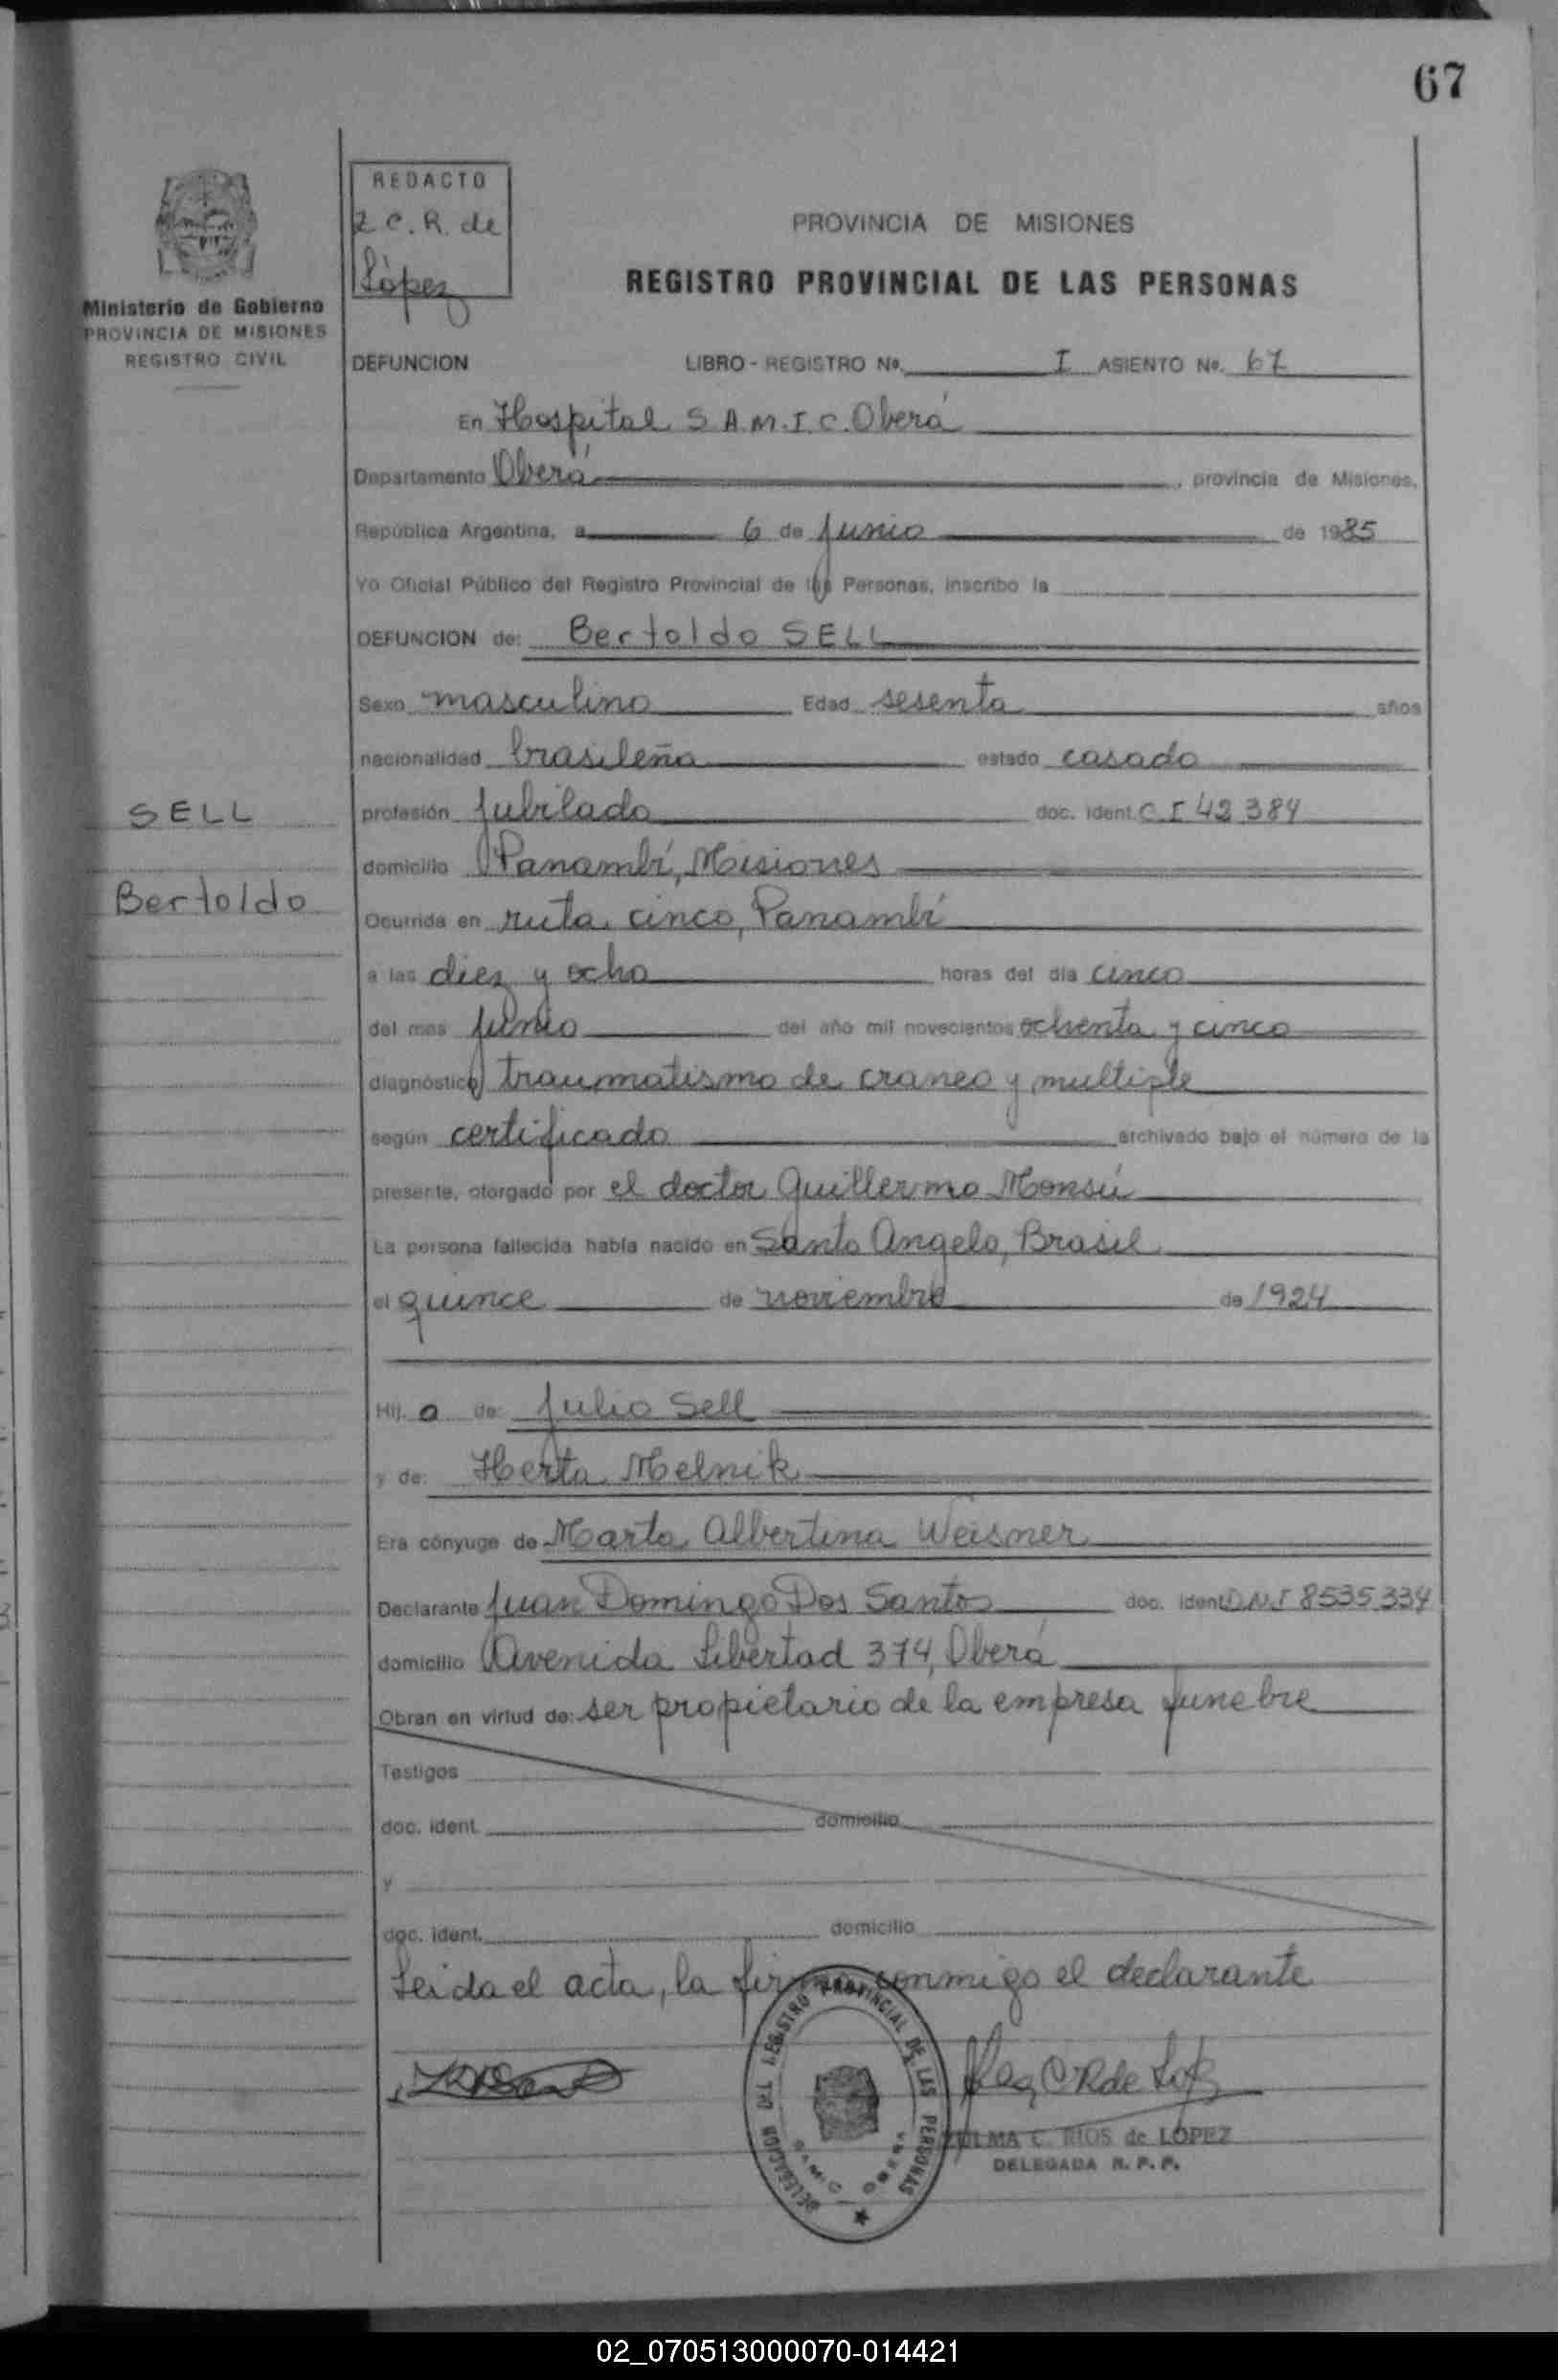 67
Ministerio de Gobierno
PROVINCIA DE MISIONES
REGISTRO CIVIL
REDACTO
Z C. R. de
López
PROVINCIA DE MISIONES
REGISTRO PROVINCIAL DE LAS PERSONAS
DEFUNCION LIBRO - REGISTRO No. I ASIENTO No. 67
En Hospital S.A.M.I.C. Oberá
Departamento Oberá, provincia de Misiones,
República Argentina, a 6 de Junio de 1985
Yo Oficial Público del Registro Provincial de las Personas, inscribo la
DEFUNCION de: Bertoldo SELL
Sexo masculino Edad sesenta años
nacionalidad brasileña estado casado
SELL
profesión Jubilado doc. ident. C I 42 384
domicilio Panambí, Misiones
Bertoldo
Ocurrida en ruta cinco, Panambí
a las diez y ocho horas del día cinco
del mes Junio del año mil novecientos ochenta y cinco
diagnóstico traumatismo de craneo y multiple
según certificado archivado bajo el número de la
presente, otorgado por el doctor Guillermo Monsú
La persona fallecida había nacido en Santo Angelo, Brasil
el quince de noviembre de 1924
Hij. o de: Julio Sell
y de: Herta Melnik
Era cónyuge de Marta Albertina Weisner
Declarante Juan Domingo Dos Santos doc. ident. DNI 8535334
domicilio Avenida Libertad 374, Oberá
Obran en virtud de: ser propietario de la empresa funebre
Testigos
doc. ident. domicilio
y
doc. ident. domicilio
Leida el acta, la firma conmigo el declarante
DELEGACION DEL REGISTRO PROVINCIAL DE LAS PERSONAS
SAMIC OBERA
ZULMA C. RIOS de LOPEZ
DELEGADA R. P. P.
02_070513000070-014421